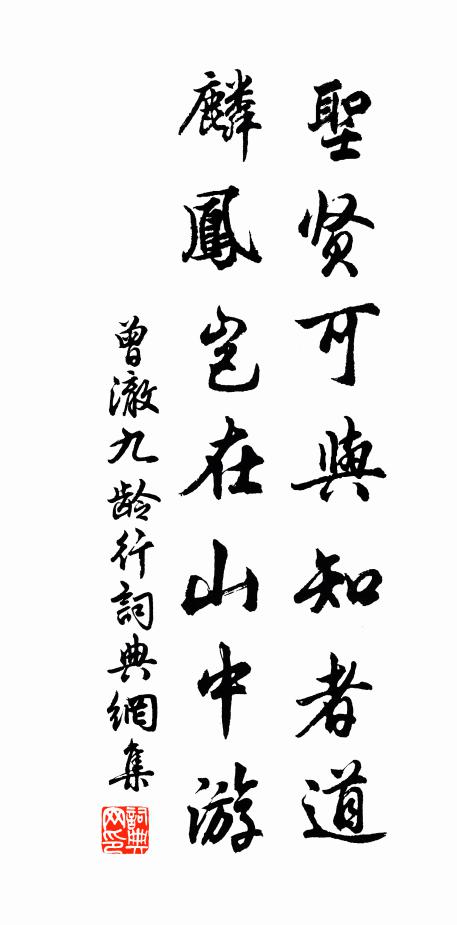 聖贤可與知者道
麟鳳豈在山中游
曾澈九龄行詞典網集
詞典网印